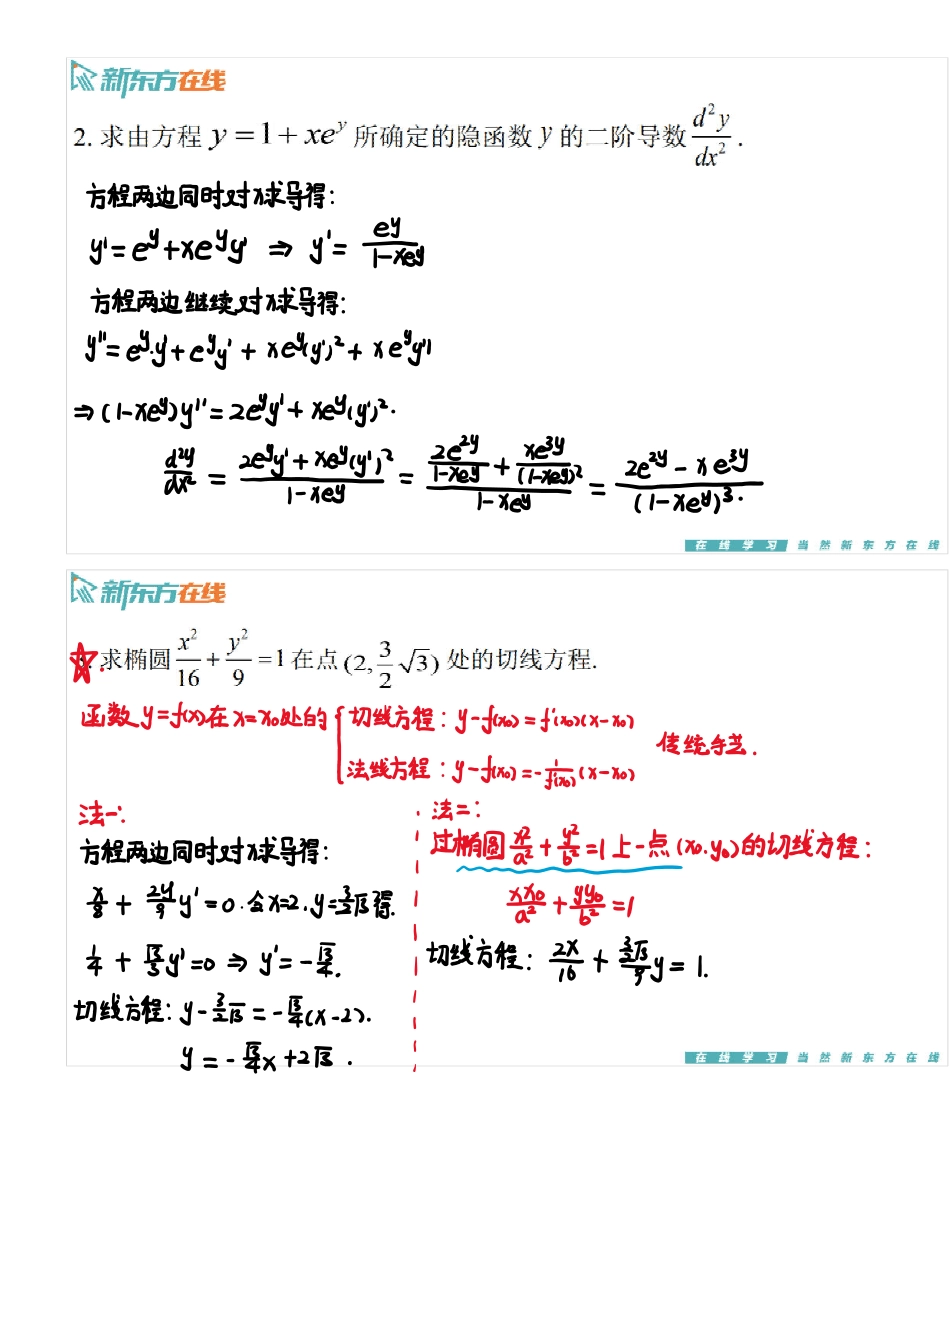 新东方在线
2. 求由方程 y = 1 + xe^y 所确定的隐函数 y 的二阶导数 d²y/dx² .
方程两边同时对x求导得:
y' = e^y + xe^y y' ⇒ y' = e^y/(1-xe^y)
方程两边继续对x求导得:
y'' = e^y·y' + e^y y' + xe^y(y')² + xe^y y''
⇒ (1-xe^y)y'' = 2e^y y' + xe^y(y')².
d²y/dx² = (2e^y y' + xe^y(y')²)/(1-xe^y) = (2e^{2y}/(1-xe^y) + xe^{3y}/(1-xe^y)²)/(1-xe^y) = (2e^{2y} - xe^{3y})/(1-xe^y)³.
在线学习 当然新东方在线
新东方在线
☆. 求椭圆 x²/16 + y²/9 = 1 在点 (2, 3/2 √3) 处的切线方程.
函数 y=f(x) 在 x=x₀处的 { 切线方程: y-f(x₀) = f'(x₀)(x-x₀)
法线方程: y-f(x₀) = -1/f'(x₀) (x-x₀)
传统手艺.
法一:
方程两边同时对x求导得:
x/8 + 2y/9 y' = 0. 令x=2, y=3/2√3得.
1/4 + √3/3 y' = 0 ⇒ y' = -√3/4.
切线方程: y - 3/2√3 = -√3/4(x-2).
y = -√3/4 x + 2√3 .
法二:
过椭圆 x²/a² + y²/b² = 1 上一点 (x₀.y₀) 的切线方程:
xx₀/a² + yy₀/b² = 1
切线方程: 2x/16 + (3/2√3)/9 y = 1.
在线学习 当然新东方在线